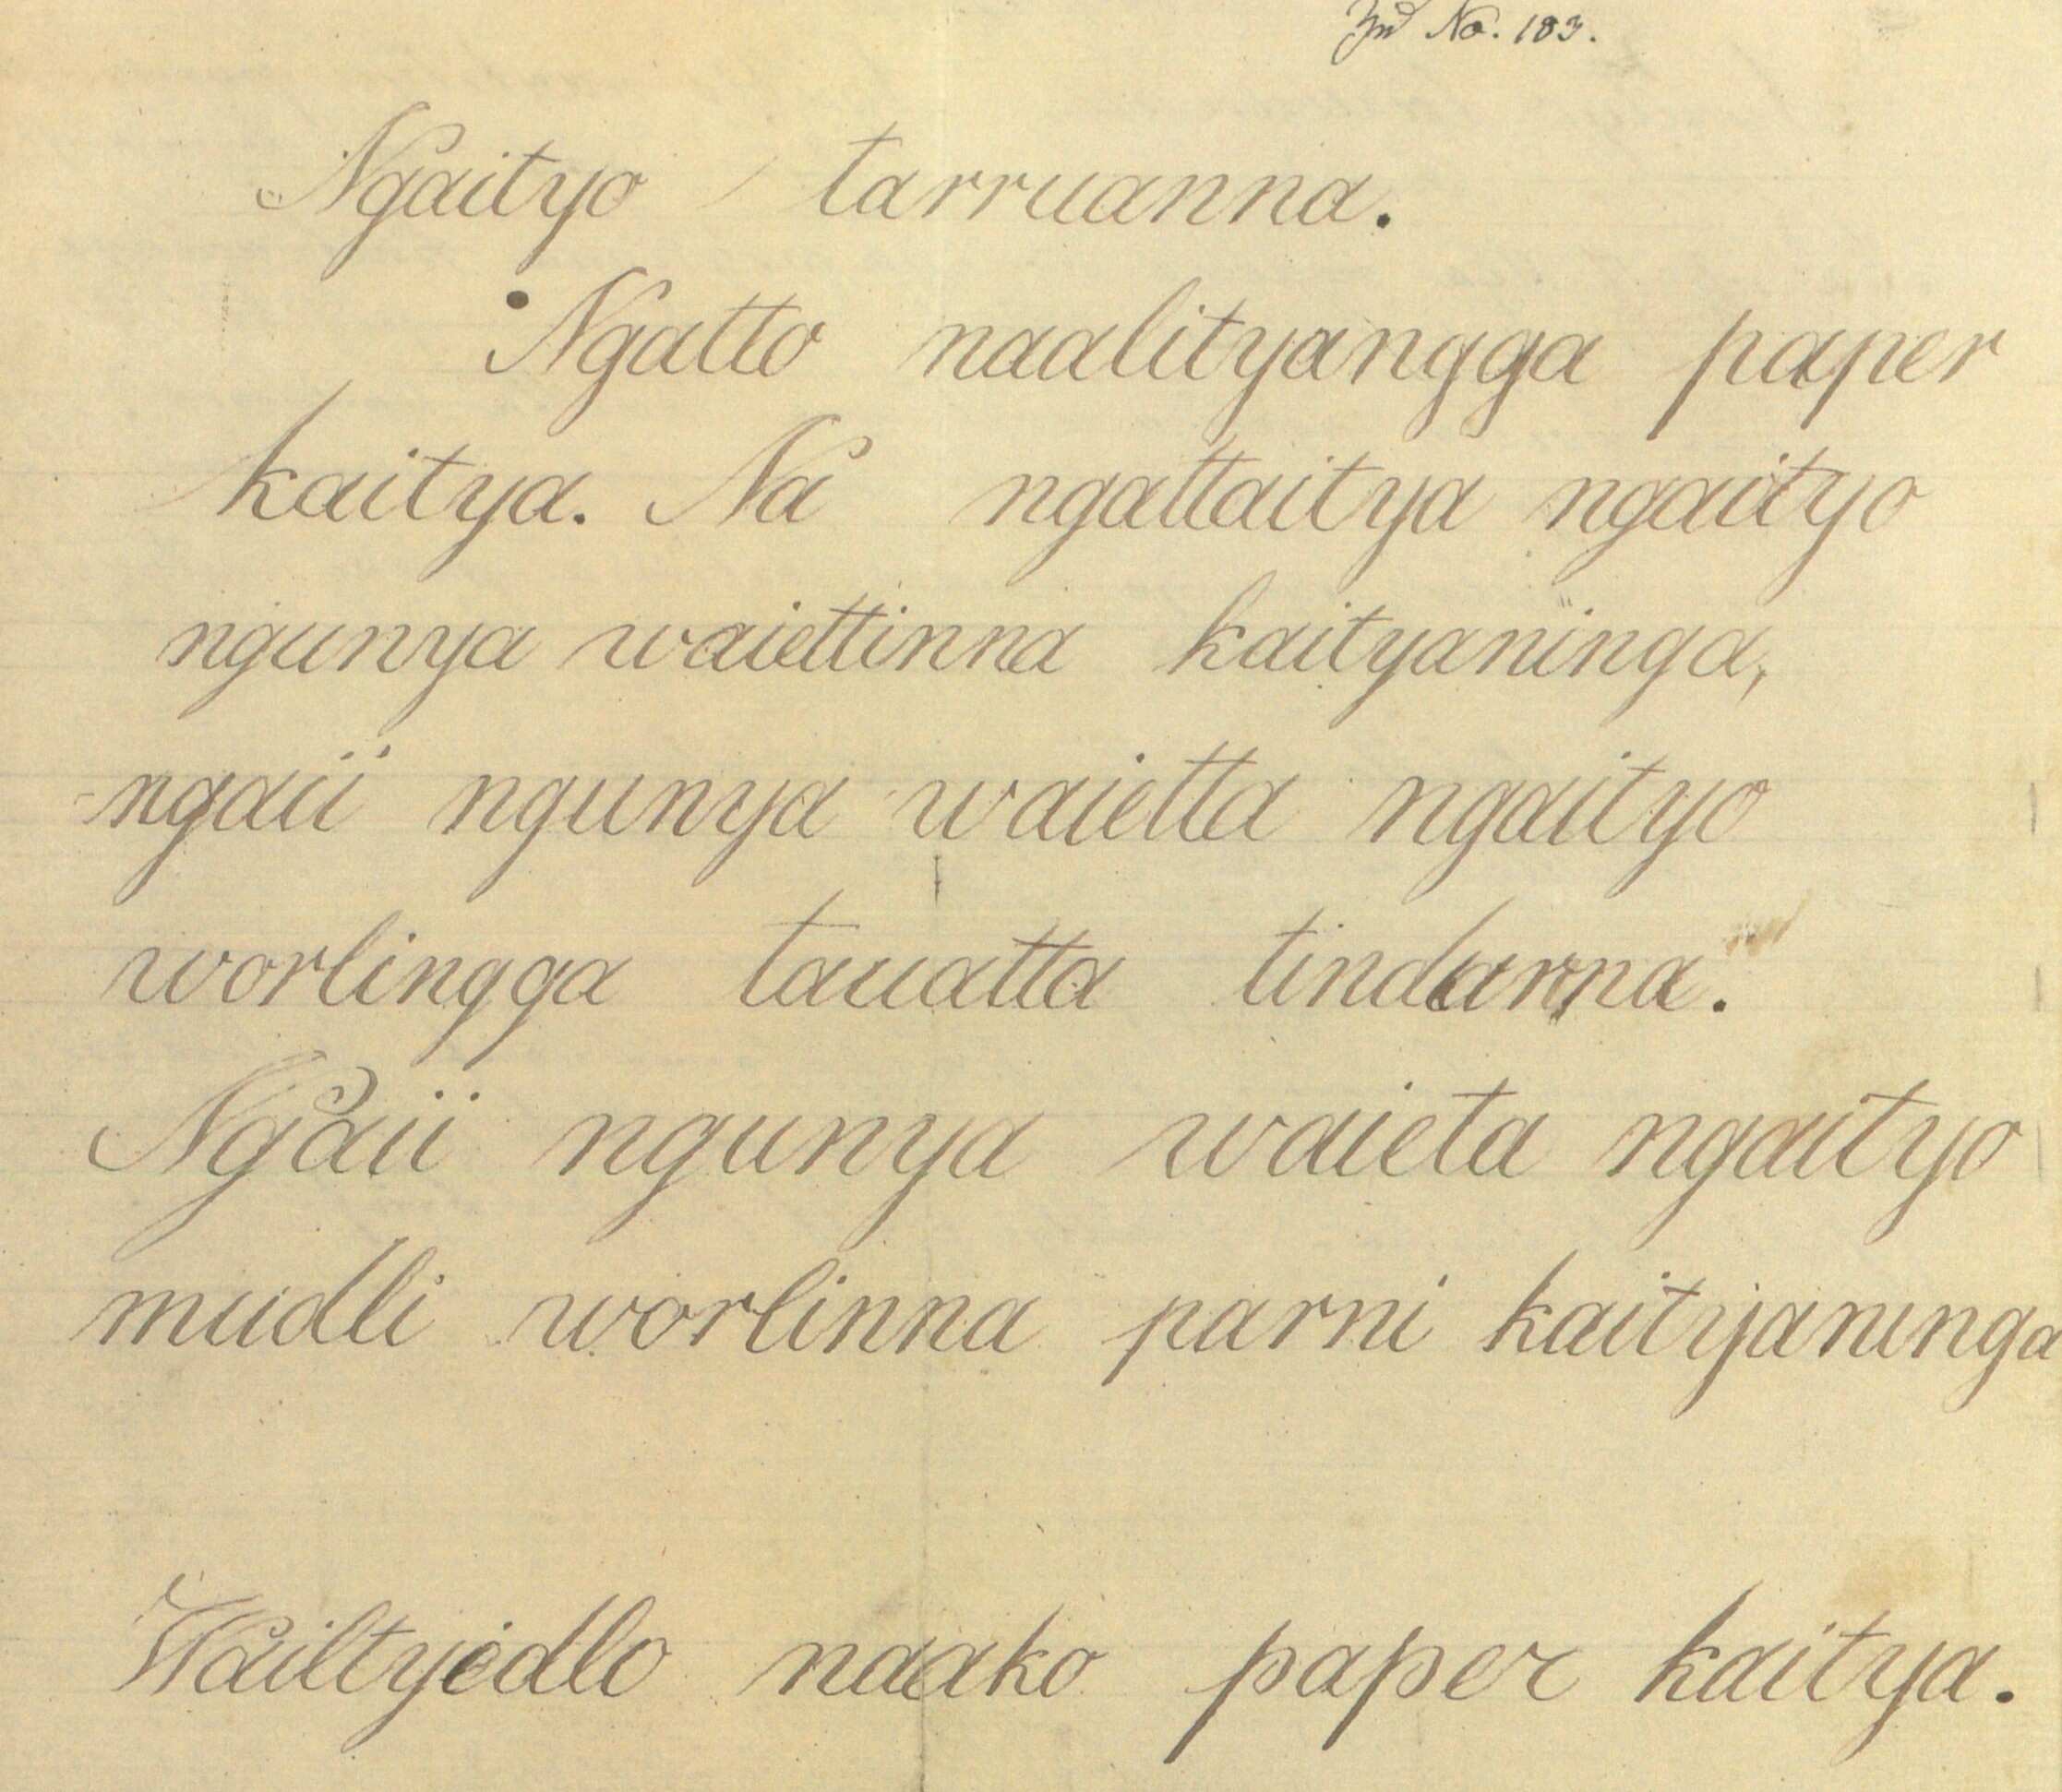 No. 183.
Ngaityo tarruanna.
Ngatto naalityangga paper
kaitya. Na ngattaitya ngaityo
ngunya waiettinna kaityaninga,
ngaii ngunya waietta ngaityo
worlingga tauatta tindarna.
Ngaii ngunya waieta ngaityo
mudli worlinna parni kaityaninga
Wailtyidlo naako paper kaitya.